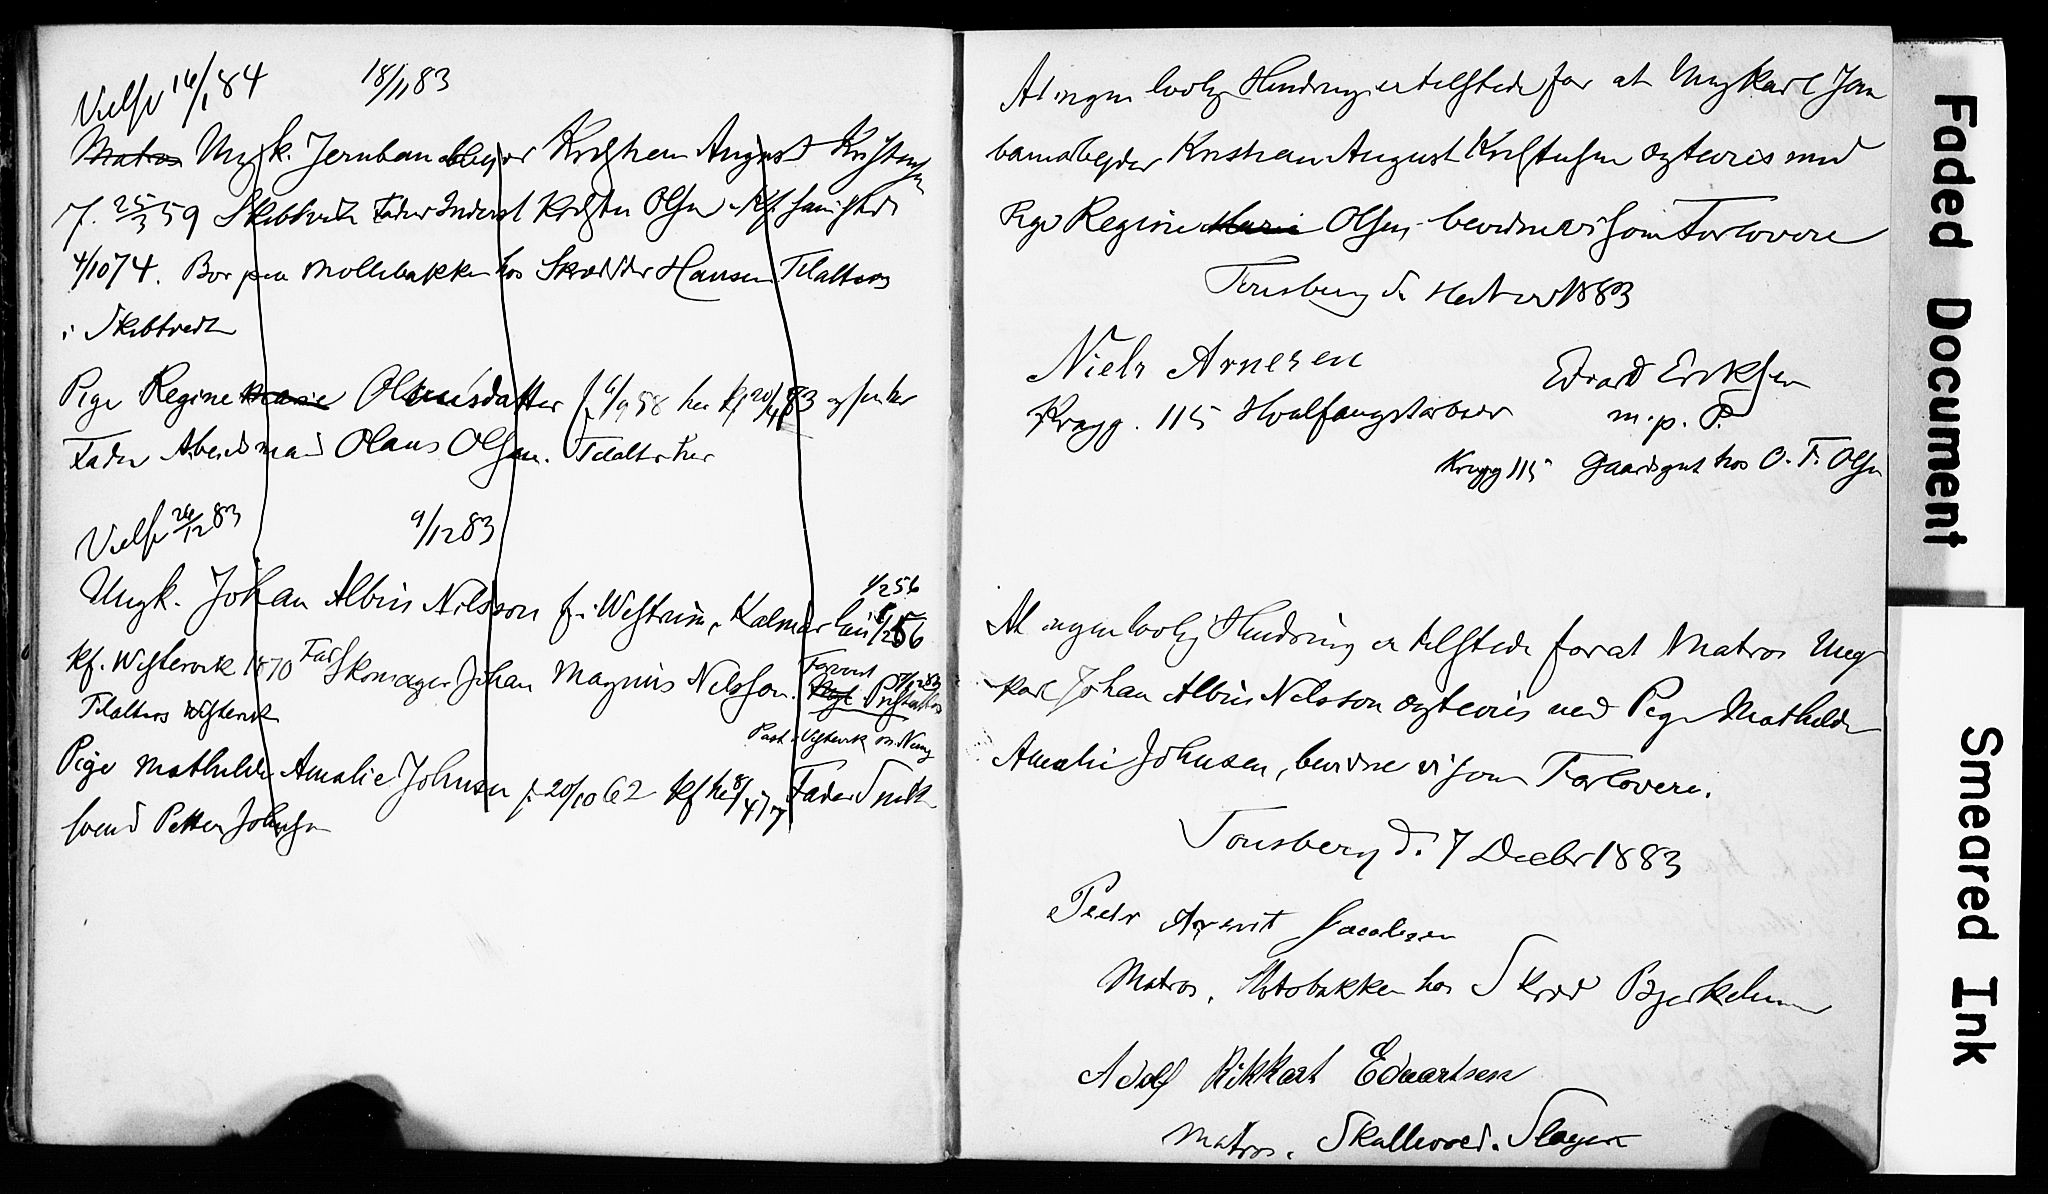 Vielse 16/1 84 18/11 83
Matros Ungk. Jernbanearbejder Kristian August Kristensen
f. 25/3 59 Skibtvedt Fader Inderst Krister Olsen Kf. samsteds
4/10 74. Bor paa Møllebakken hos Skrædder Hansen Tilalters
i Skibtvedt
Pige Regine Marie Olausdatter f. 6/9 58 her Kf 20/4 83
Fader Arbeidsmand Olaus Olsen. Tilalters her
Vielse 26/12 83 9/12 83
Ungk. Johan Albin Nilsson f. i Westrum, Kalmar Län 1/2 56
1/2 56
Kf. Westervik 1870 Far Skomager Johan Magnus Nilsson. Forevist
Tilalters Westervik
Pige Mathilde Amalie Johnsen f. 20/10 62 Kf her 8/4 77 Fader Smed
svend Petter Johnsen
At ingen lovlig Hindring er tilstede for at Ungkarl Jern
banearbejder Kristian August Kristensen ægtevies med
Pige Regine Marie Olsen, bevidne vi som Forlovere
Tønsberg d. Novbr 1883
Niels Arnesen
Edvard Eriksen
Kragg. 115 Hvalfangstarbeider
m. p. P.
Kragg 115 Gaardsgut hos O. F. Olsen
At ingen lovlig Hindring er tilstede for at Matros Ung
karl Johan Albin Nilsson ægtevies med Pige Mathilde
Amalie Johnsen, bevidne vi som Forlovere.
Tønsberg d. 7 Decbr 1883
Peder Agent Jacobsen
Matros, hos Skræd Bjerkelund
Adolf Rikkart Edvartsen
Matros. Skallevold. Slagen
Faded Document
Smeared Ink